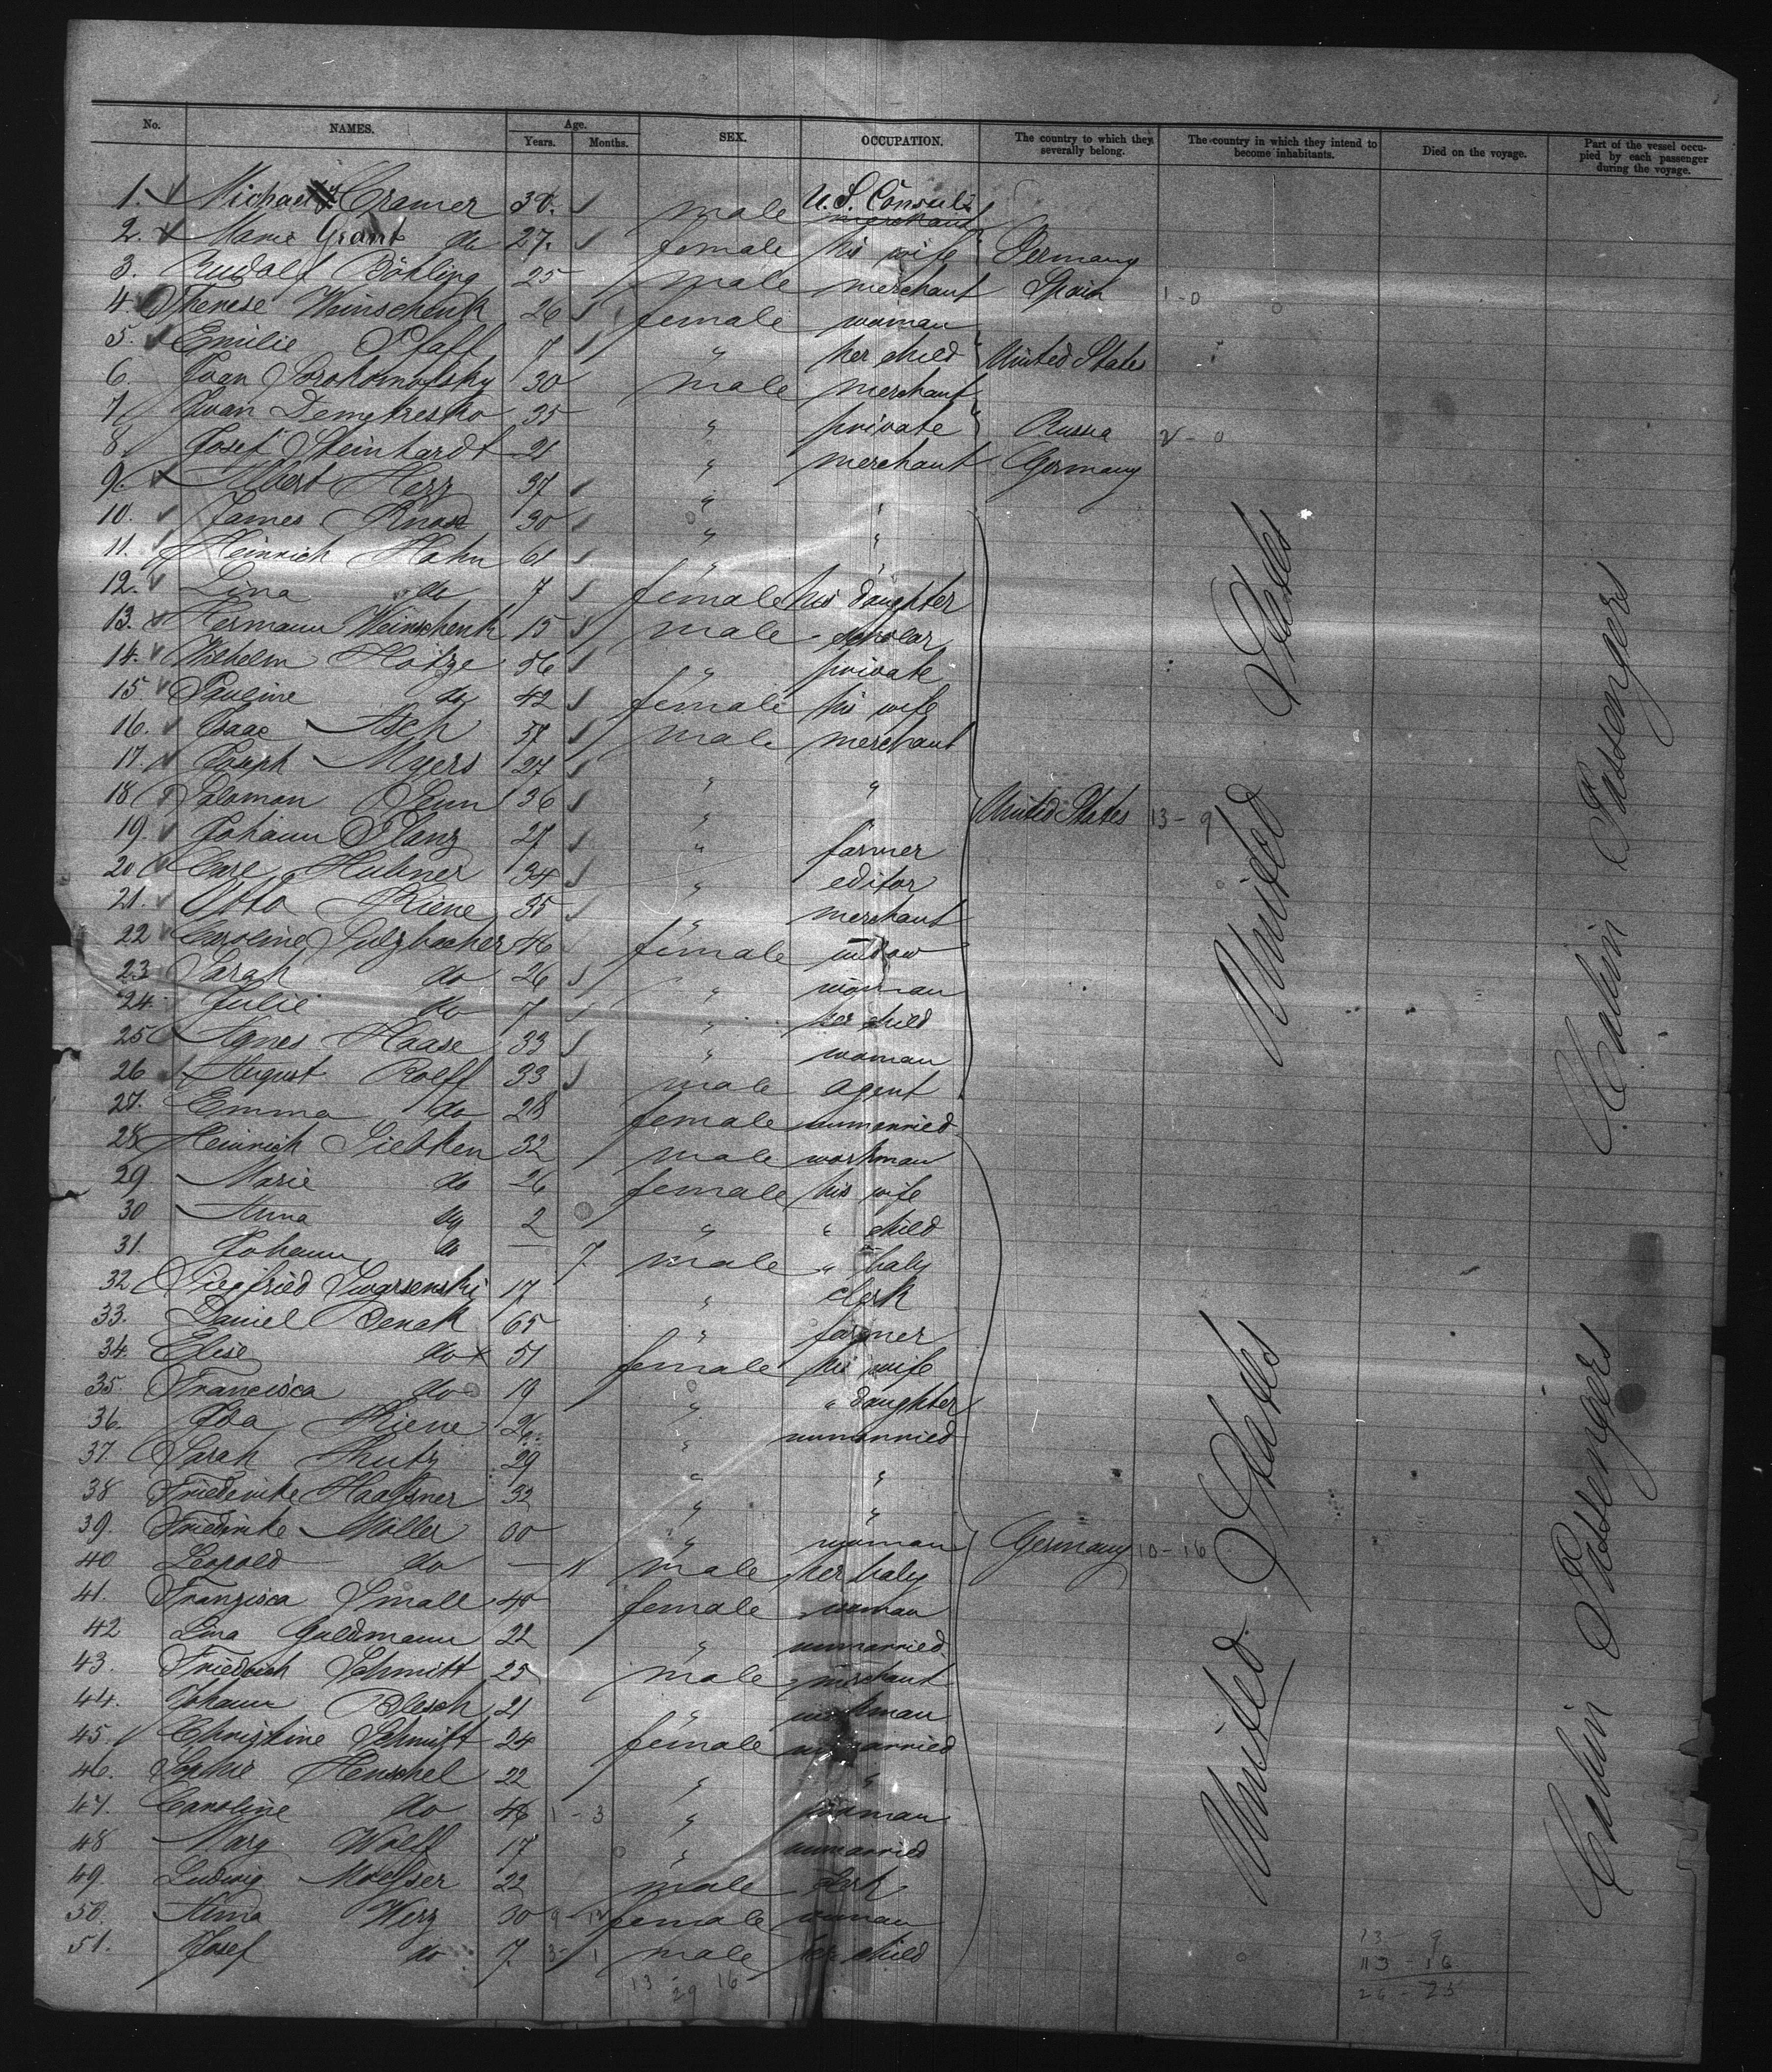 No. NAMES. Age. Years. Months. SEX. OCCUPATION. The country to which they severally belong. The country in which they intend to become inhabitants. Died on the voyage. Part of the vessel occupied by each passenger during the voyage.
1. Michael J. Cramer 38. male U.S. Consul merchant
2. Marie Grant do 27. female his wife Germany
3. Rudolf Böhling 25 male merchant Spain 1-0
4. Therese Weinschenk 26 female woman
5. Emilie Pfaff 7 " her child United States
6. Ivan 30 male merchant
7 Iwan Demetresko 35 " private Russia 2-0
8. Josef Steinhardt 21 " merchant Germany
9. Albert Herz 37 " "
10. James Knose 30 " "
11. Heinrich Hahn 61 " "
12. Lina do 7 female his daughter
13. Hermann Weinschenk 15 male scholar
14. Wilhelm Hotze 56 " private
15. Pauline do 42 female his wife
16. Isaac Asch 57 male merchant
17. Joseph Myers 27 " "
18 Salomon Penn 36 " United States 13-9
19. Johann Planz 27 " farmer
20 Carl Hubner 34 " editor
21. Otto Kiene 35 " merchant
22 Caroline Sulzbacher 46 female widow
23 Sarah do 26 " woman
24. Julie do 7 " her child
25 Agnes Haase 33 " woman
26 August Rolff 33 male agent
27. Emma do 28 female unmarried
28 Heinrich Siebken 32 male workman
29 Marie do 26 female his wife
30 Anna do 2 " " child
31. Johann do — 7. male " baby
32 Siegfried Swarsenski 17 " clerk
33. Daniel Benak 65 " farmer
34. Elise do 51 female his wife
35 Francisca do 19 " " daughter
36. Ida Kiene 26 " unmarried
37. Sarah Hutz 29 " "
38 Friederike Haassner 32 " "
39. Friedrike Möller 30 " woman Germany 10-16
40 Leopold do — male her baby
41. Franzisca Small 40 female woman
42 Lina Guldmann 22 " unmarried
43. Friedrich Schmitt 25 male merchant
44. Johann Blesch 21 " workman
45. Christine Schmitt 24 female unmarried
46. Sophie Henschel 22 " "
47. Caroline do 46 1-3 " woman
48 Mary Wolff 17 " unmarried
49. Ludwig 22 male clerk
50. Anna Werz 30 9-12 female woman
51. Josef do 7. 3-1 male her child
United States
United States
Cabin Passengers
Cabin Passengers
13 - 16
29
13 - 9
13 - 16
26 - 25